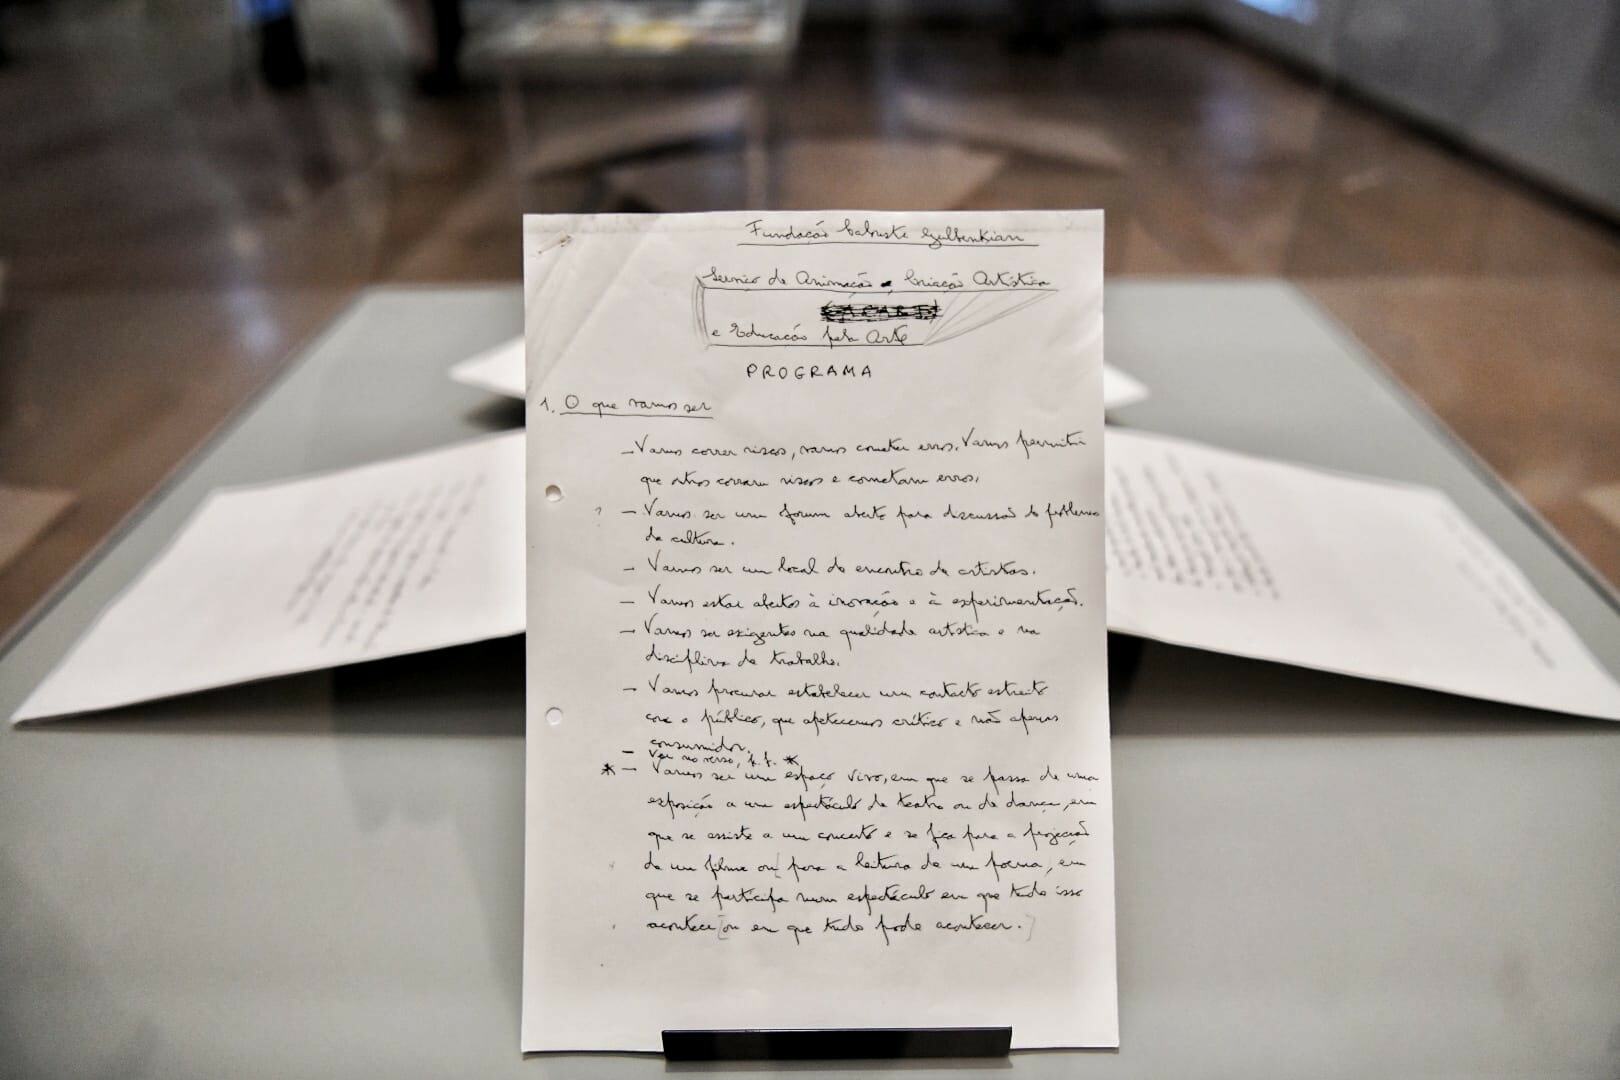 Fundação Calouste Gulbenkian
Serviço de Animação, Criação Artística
e Educação pela Arte
PROGRAMA
1. O que vamos ser
- Vamos correr riscos, vamos cometer erros. Vamos permitir
que outros corram riscos e cometam erros.
? - Vamos ser um forum aberto para discussão de problemas
da cultura.
- Vamos ser um local de encontro de artistas.
- Vamos estar abertos à inovação e à experimentação.
- Vamos ser exigentes na qualidade artística e na
disciplina de trabalho.
- Vamos procurar estabelecer um contacto estreito
com o público, que apetecemos crítico e não apenas
consumidor.
- Ver no verso, p.f. *
* - Vamos ser um espaço vivo, em que se passa de uma
exposição a um espectáculo de teatro ou de dança, em
que se assiste a um concerto e se fica para a projecção
de um filme ou para a leitura de um poema, em
que se participa num espectáculo em que tudo isso
acontece [ou em que tudo pode acontecer.]